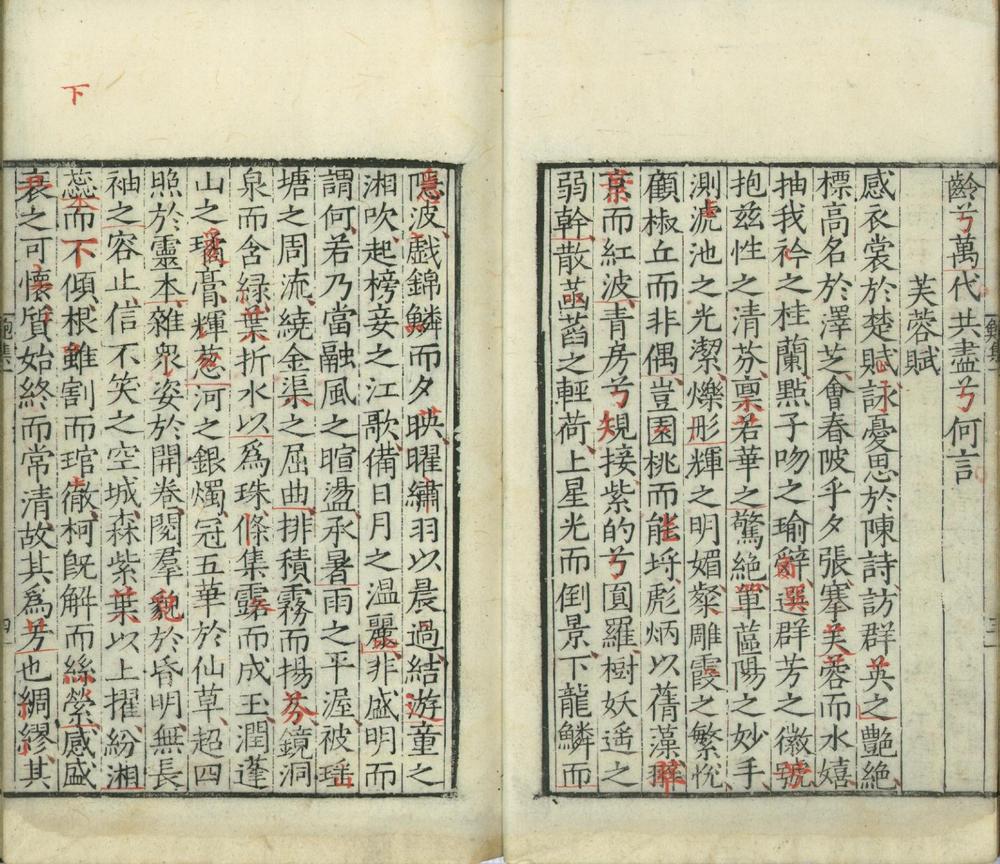 齡兮萬代共盡兮何言
芙蓉賦
感衣裳於楚賦詠憂思於陳詩訪群英之艷絶
標高名於澤芝會春陂乎夕張搴芙蓉而水嬉
抽我衿之桂蘭點子吻之瑜辭選群芳之徽號
抱茲性之清芬稟若華之驚絶單蓲陽之妙手
測淲池之光潔爍彤輝之明媚粲雕霞之繁悅
顧椒丘而非偶豈園桃而能埒彪炳以蒨藻翠
景而紅波青房兮規接紫的兮圓羅樹妖遙之
弱幹散菡萏之輕荷上星光而倒景下龍鱗而
隱波戲錦鱗而夕映曜繡羽以晨過結遊童之
湘吹起榜妾之江歌備日月之温麗非盛明而
謂何若乃當融風之暄盪承暑雨之平渥被瑶
塘之周流繞金渠之屈曲排積霧而揚芬鏡洞
泉而含緑葉折水以爲珠條集露而成玉潤蓬
山之瓊膏輝葱河之銀燭冠五華於仙草超四
照於靈本雜衆姿於開卷閱羣貌於昏明無長
袖之容止信不笑之空城森紫葉以上擢紛湘
蕊而下傾根雖割而琯徹柯既解而絲縈感盛
衰之可懷質始終而常清故其爲芳也綢繆其
下